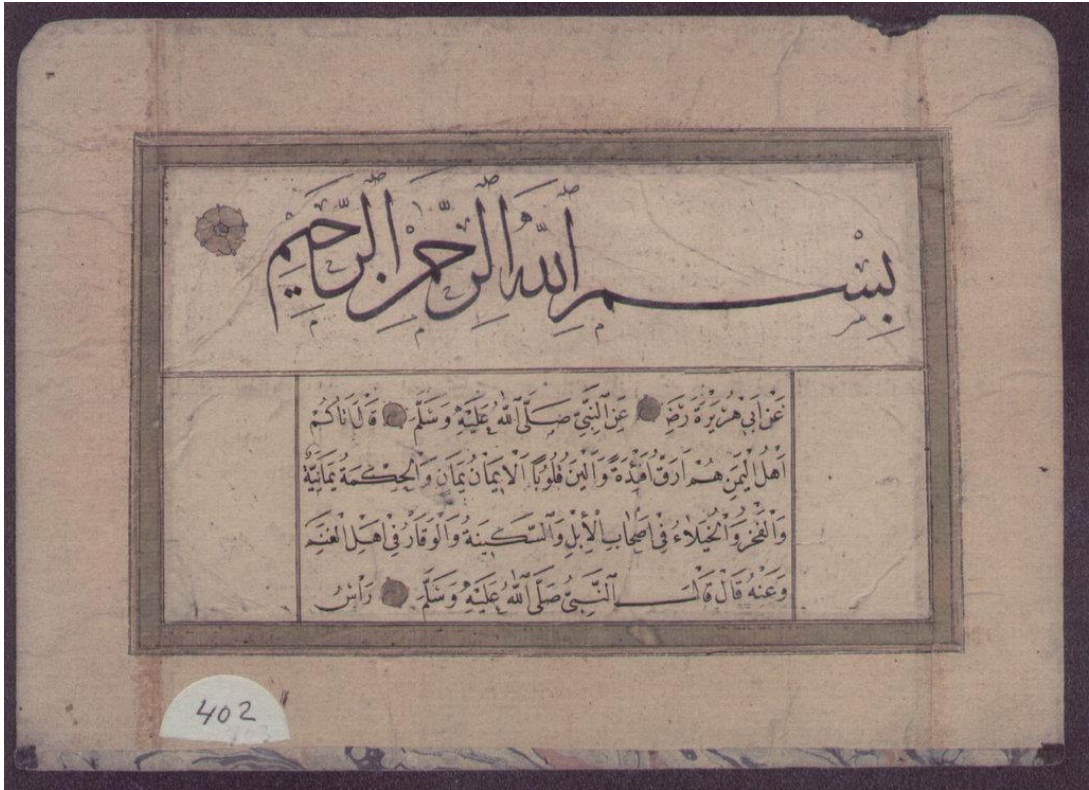 بِسْمِ اللّٰهِ الرَّحْمٰنِ الرَّحِيمِ
عَنْ اَبِي هُرَيْرَةَ رَضِ عَنِ النَّبِيِّ صَلَّى اللّٰهُ عَلَيْهِ وَسَلَّمَ قَالَ اَتَاكُمْ
اَهْلُ الْيَمَنِ هُمْ اَرَقُّ اَفْئِدَةً وَاَلْيَنُ قُلُوبًا اَلْاِيمَانُ يَمَانٍ وَالْحِكْمَةُ يَمَانِيَّةٌ
وَالْفَخْرُ وَالْخُيَلَاءُ فِي اَصْحَابِ الْاِبِلِ وَالسَّكِينَةُ وَالْوَقَارُ فِي اَهْلِ الْغَنَمِ
وَعَنْهُ قَالَ قَالَ النَّبِيُّ صَلَّى اللّٰهُ عَلَيْهِ وَسَلَّمَ رَاْسُ
402